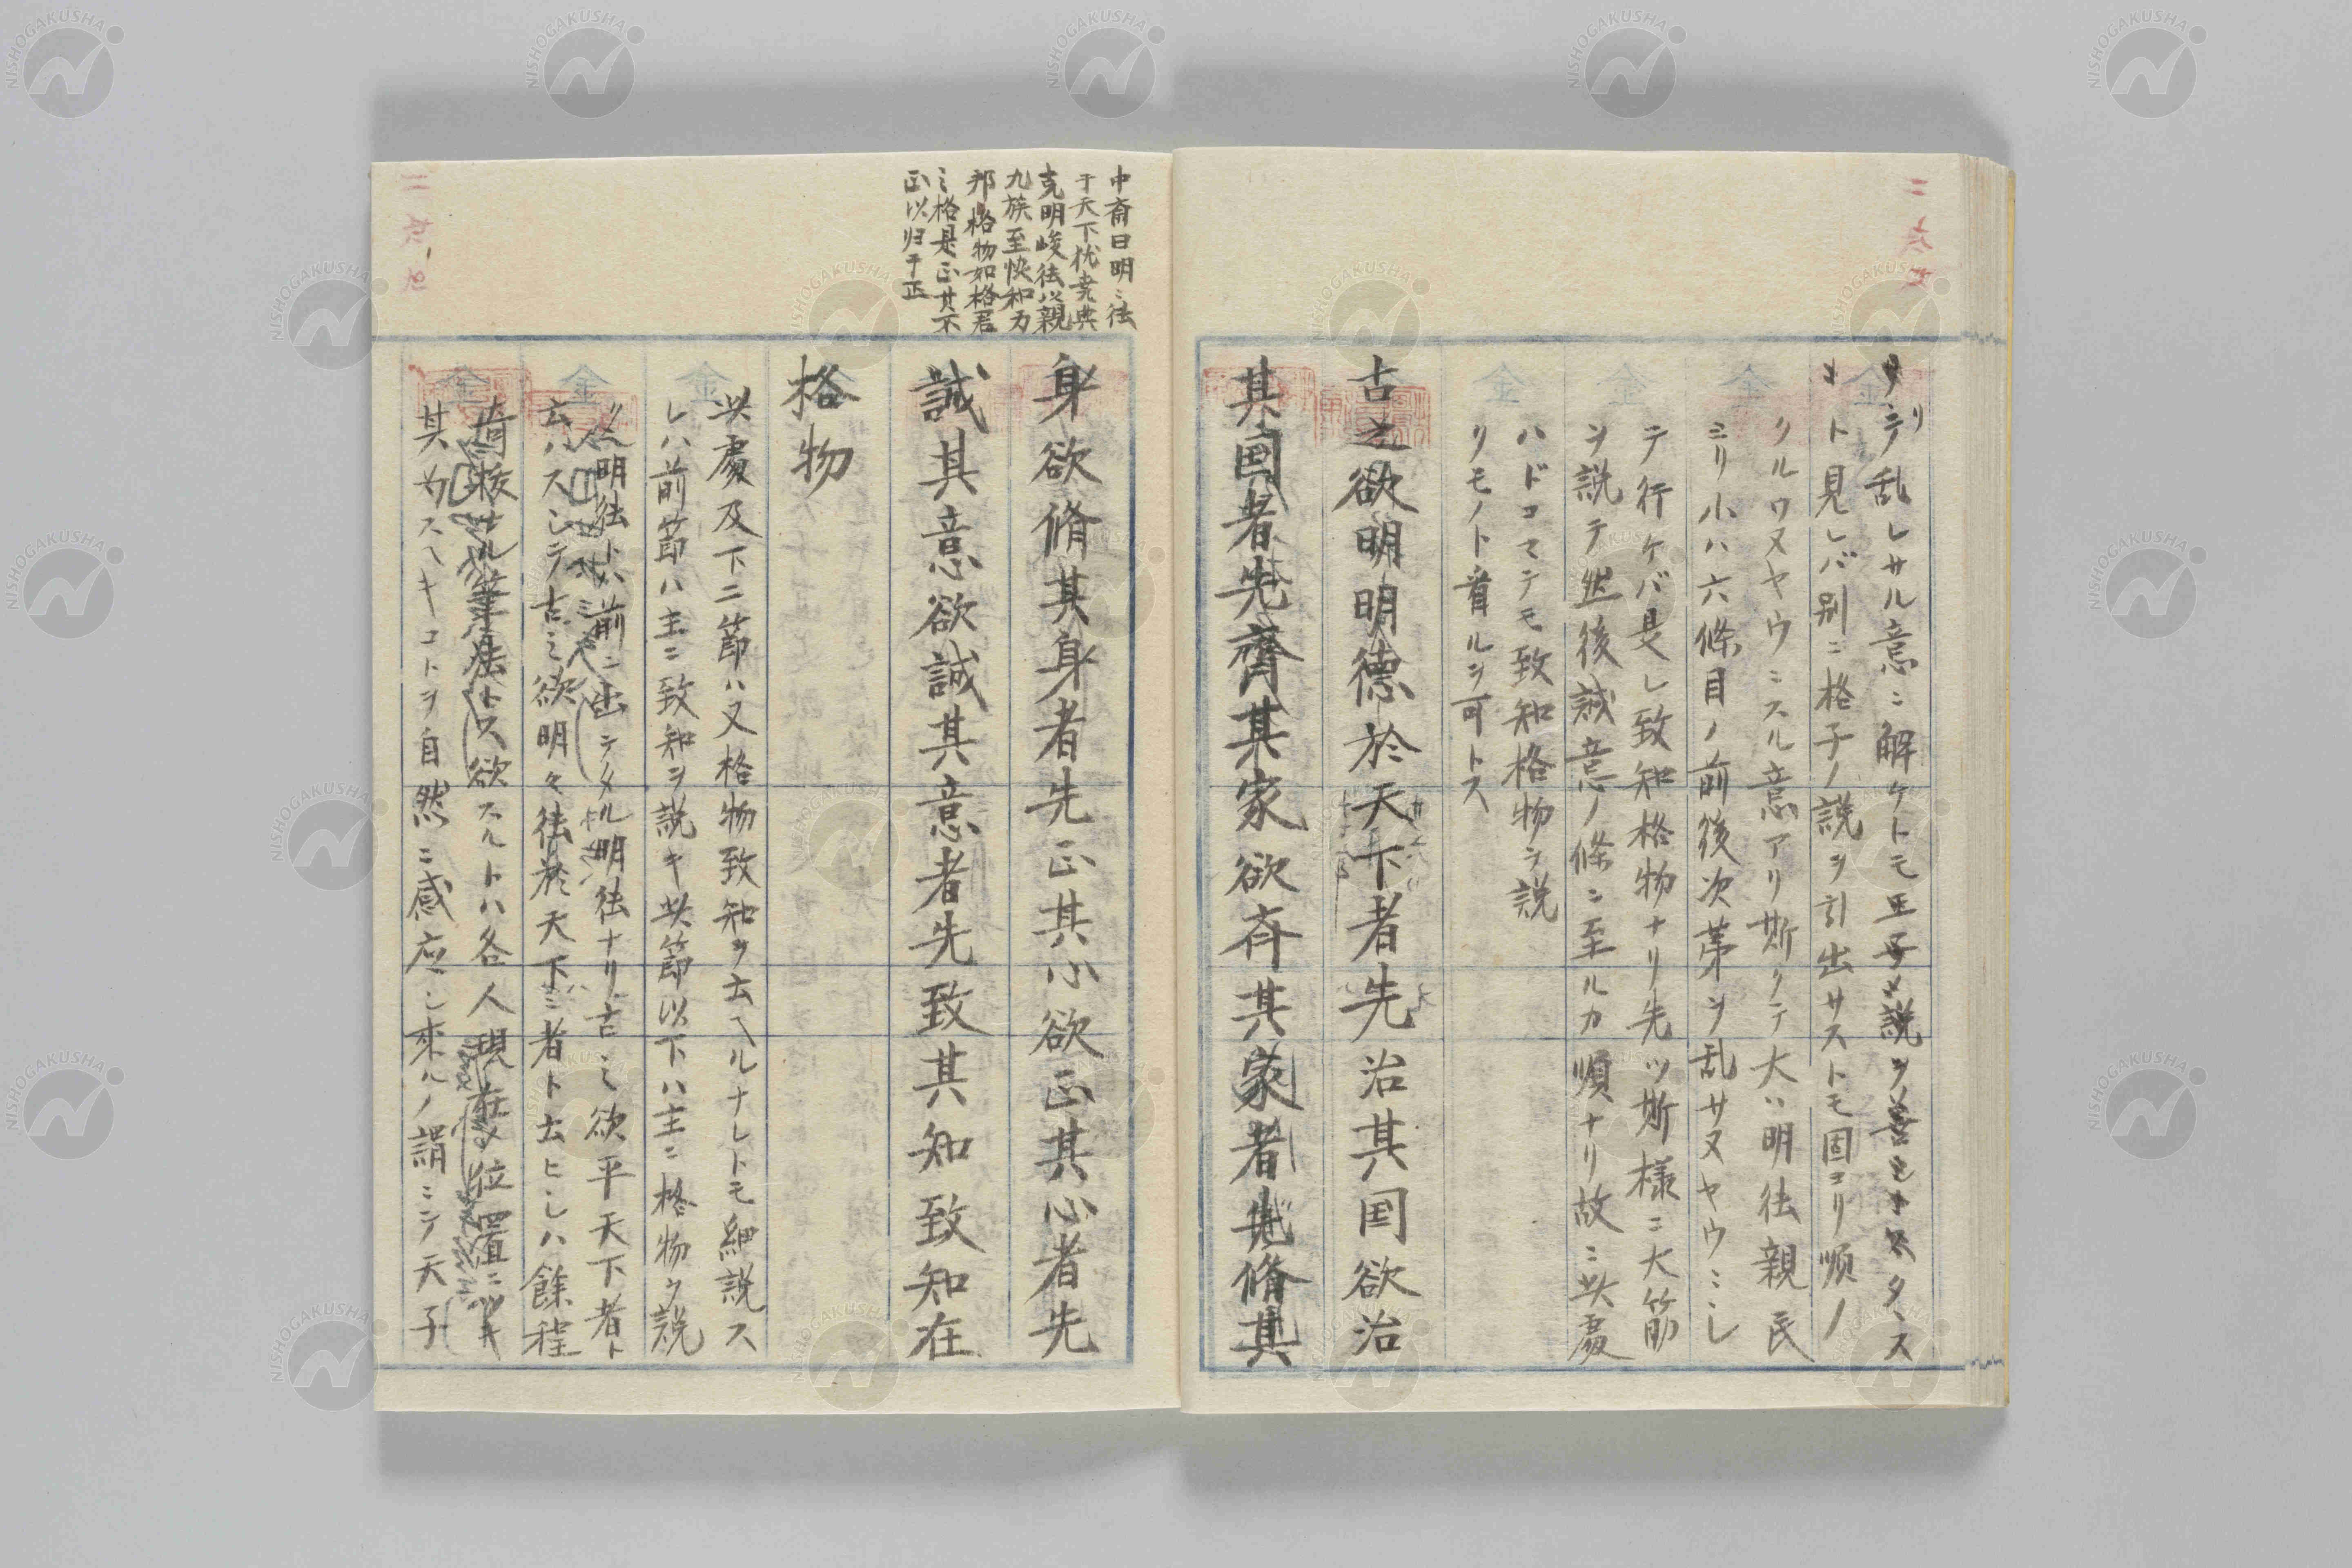 乱レサル意ニ解ケトモ
ト見レバ別ニ格子ノ説ヲ引出サストモ固ヨリ順ノ
クルワヌヤウニスル意アリ斯クテ大ハ明徳親民
ヨリ小ハ六條目ノ前後次第ヲ乱サヌヤウニシ
テ行ケバ是レ致知格物ナリ先ツ斯様ニ大筋
ヲ説テ然後誠意ノ條ニ至ルカ順ナリ故ニ此處
ハドコマテモ致知格物ヲ説
リモノト看ルヲ可トス
古之欲明明德於天下者先治其国欲治
其国者先齊其家欲斉其家者先脩其
中斎曰明〻徳
于天下猶堯典
克明峻徳以親
九族至協和万
邦格物如格君
之格是正其不
正以归于正
身欲脩其身者先正其心欲正其心者先
誠其意欲誠其意者先致其知致知在
格物
此處及下二節ハ又格物致知ヲ云ヘルナレトモ細説ス
レハ前節ハ主ニ致知ヲ説キ此節以下ハ主ニ格物ヲ説
ク 明徳トハ前ニ出テタル明徳ナリ古之欲平天下者ト
云ハスシテ古之欲明々徳於天下之者ト云ヒシハ餘程
欲スルトハ各人現在位置ニ
其 スヘキコトヲ自然ニ感応シ來ルノ謂ニテ天子
NISHOGAKUSHA